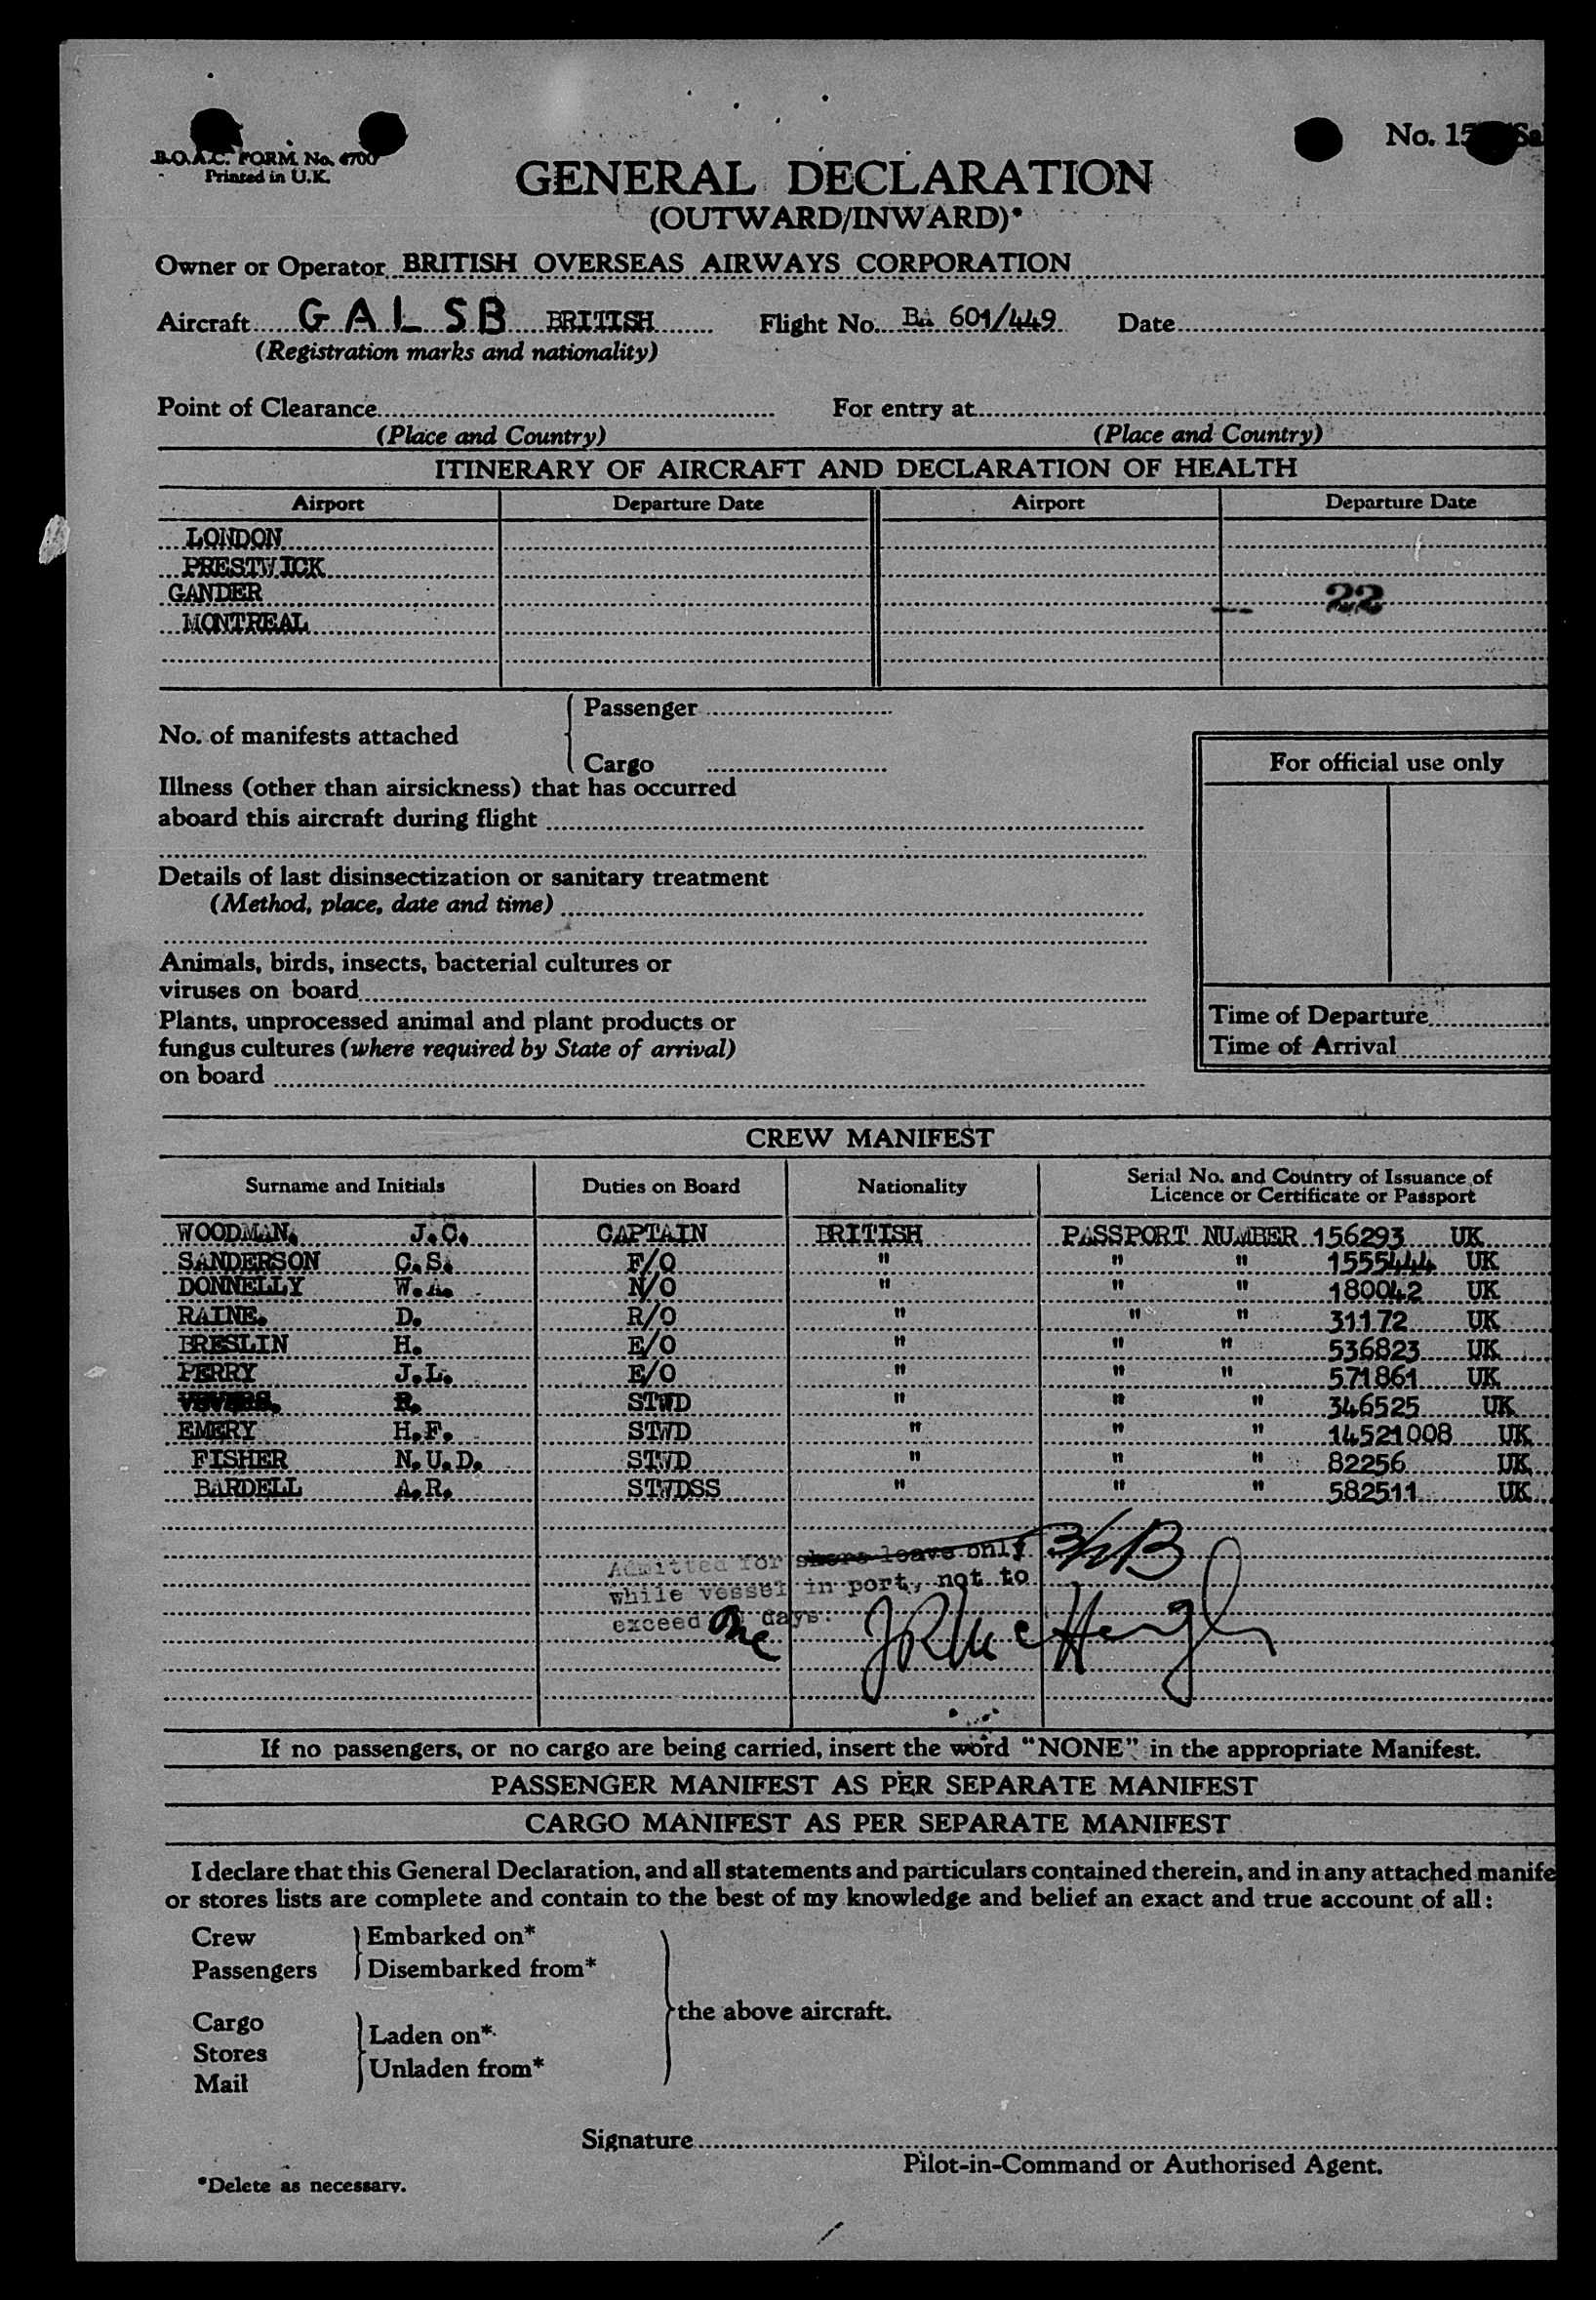 B.O.A.C. FORM No. 4700
Printed in U.K.
No. 15
GENERAL DECLARATION
(OUTWARD/INWARD)*
Owner or Operator BRITISH OVERSEAS AIRWAYS CORPORATION
Aircraft G A L S B BRITISH Flight No. BA 601/449 Date
(Registration marks and nationality)
Point of Clearance For entry at
(Place and Country) (Place and Country)
ITINERARY OF AIRCRAFT AND DECLARATION OF HEALTH
Airport Departure Date Airport Departure Date
LONDON
PRESTWICK
GANDER 22
MONTREAL
Passenger
No. of manifests attached
Cargo
For official use only
Illness (other than airsickness) that has occurred
aboard this aircraft during flight
Details of last disinsectization or sanitary treatment
(Method, place, date and time)
Animals, birds, insects, bacterial cultures or
viruses on board
Plants, unprocessed animal and plant products or
fungus cultures (where required by State of arrival)
on board
Time of Departure
Time of Arrival
CREW MANIFEST
Surname and Initials Duties on Board Nationality Serial No. and Country of Issuance of Licence or Certificate or Passport
WOODMAN. J.C. CAPTAIN BRITISH PASSPORT NUMBER 156293 UK
SANDERSON C.S. F/O " " " 1555444 UK
DONNELLY W.A. N/O " " " 180042 UK
RAINE. D. R/O " " " 31172 UK
BRESLIN H. E/O " " " 536823 UK
PERRY J.L. E/O " " " 571861 UK
R. STWD " " " 346525 UK
EMERY H.F. STWD " " " 14521008 UK
FISHER N.U.D. STWD " " " 82256 UK
BARDELL A.R. STWDSS " " " 582511 UK
Admitted for shore leave only
while vessel in port, not to
exceed One days.
If no passengers, or no cargo are being carried, insert the word "NONE" in the appropriate Manifest.
PASSENGER MANIFEST AS PER SEPARATE MANIFEST
CARGO MANIFEST AS PER SEPARATE MANIFEST
I declare that this General Declaration, and all statements and particulars contained therein, and in any attached manife
or stores lists are complete and contain to the best of my knowledge and belief an exact and true account of all:
Crew Embarked on*
Passengers Disembarked from*
the above aircraft.
Cargo Laden on*
Stores Unladen from*
Mail
Signature
Pilot-in-Command or Authorised Agent.
*Delete as necessary.